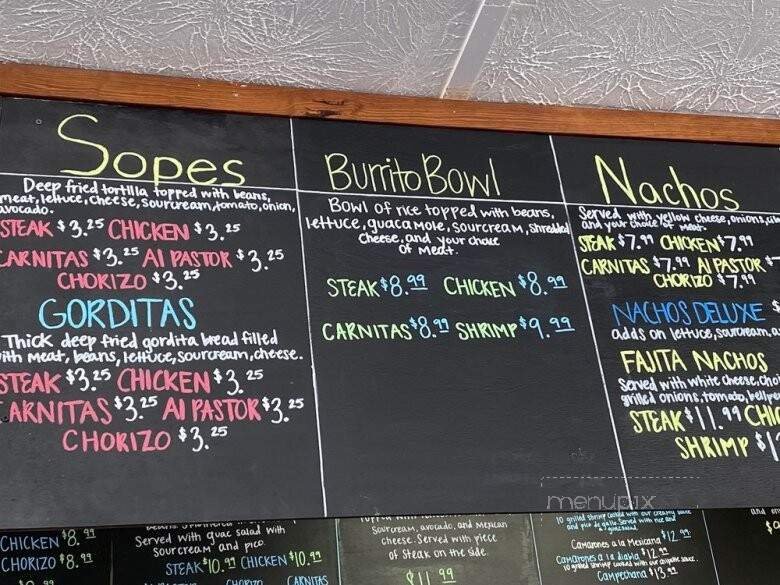 Sopes
Deep fried tortilla topped with beans,
meat, lettuce, cheese, sourcream, tomato, onion,
avocado.
STEAK $3.25 CHICKEN $3.25
CARNITAS $3.25 Al PASTOR $3.25
CHORIZO $3.25
GORDITAS
Thick deep fried gordita bread filled
with meat, beans, lettuce, sourcream, cheese.
STEAK $3.25 CHICKEN $3.25
CARNITAS $3.25 Al PASTOR $3.25
CHORIZO $3.25
Burrito Bowl
Bowl of rice topped with beans,
lettuce, guacamole, sourcream, shredded
cheese, and your choice
of meat.
STEAK $8.99 CHICKEN $8.99
CARNITAS $8.99 SHRIMP $9.99
Nachos
Served with yellow cheese, onions,
and your choice of meat.
STEAK $7.99 CHICKEN $7.99
CARNITAS $7.99 Al PASTOR
CHORIZO $7.99
NACHOS DELUXE
adds on lettuce, sourcream,
FAJITA NACHOS
Served with white cheese,
grilled onions, tomato,
STEAK $11.99
SHRIMP
menupix
CHICKEN $8.99
CHORIZO $8.99
Served with guac salad with
sourcream and pico
STEAK $10.99 CHICKEN $10.99
CHORIZO CARNITAS
sourcream, avocado, and Mexican
cheese. Served with piece
of steak on the side.
$11.99
10 grilled shrimp cooked with our creamy
and pico de gallo. Served with rice and
Camarones a la Mexicana $12.99
Camarones a la diabla $12.99
10 grilled shrimp cooked with our chipotle sauce.
Campechana $13.99